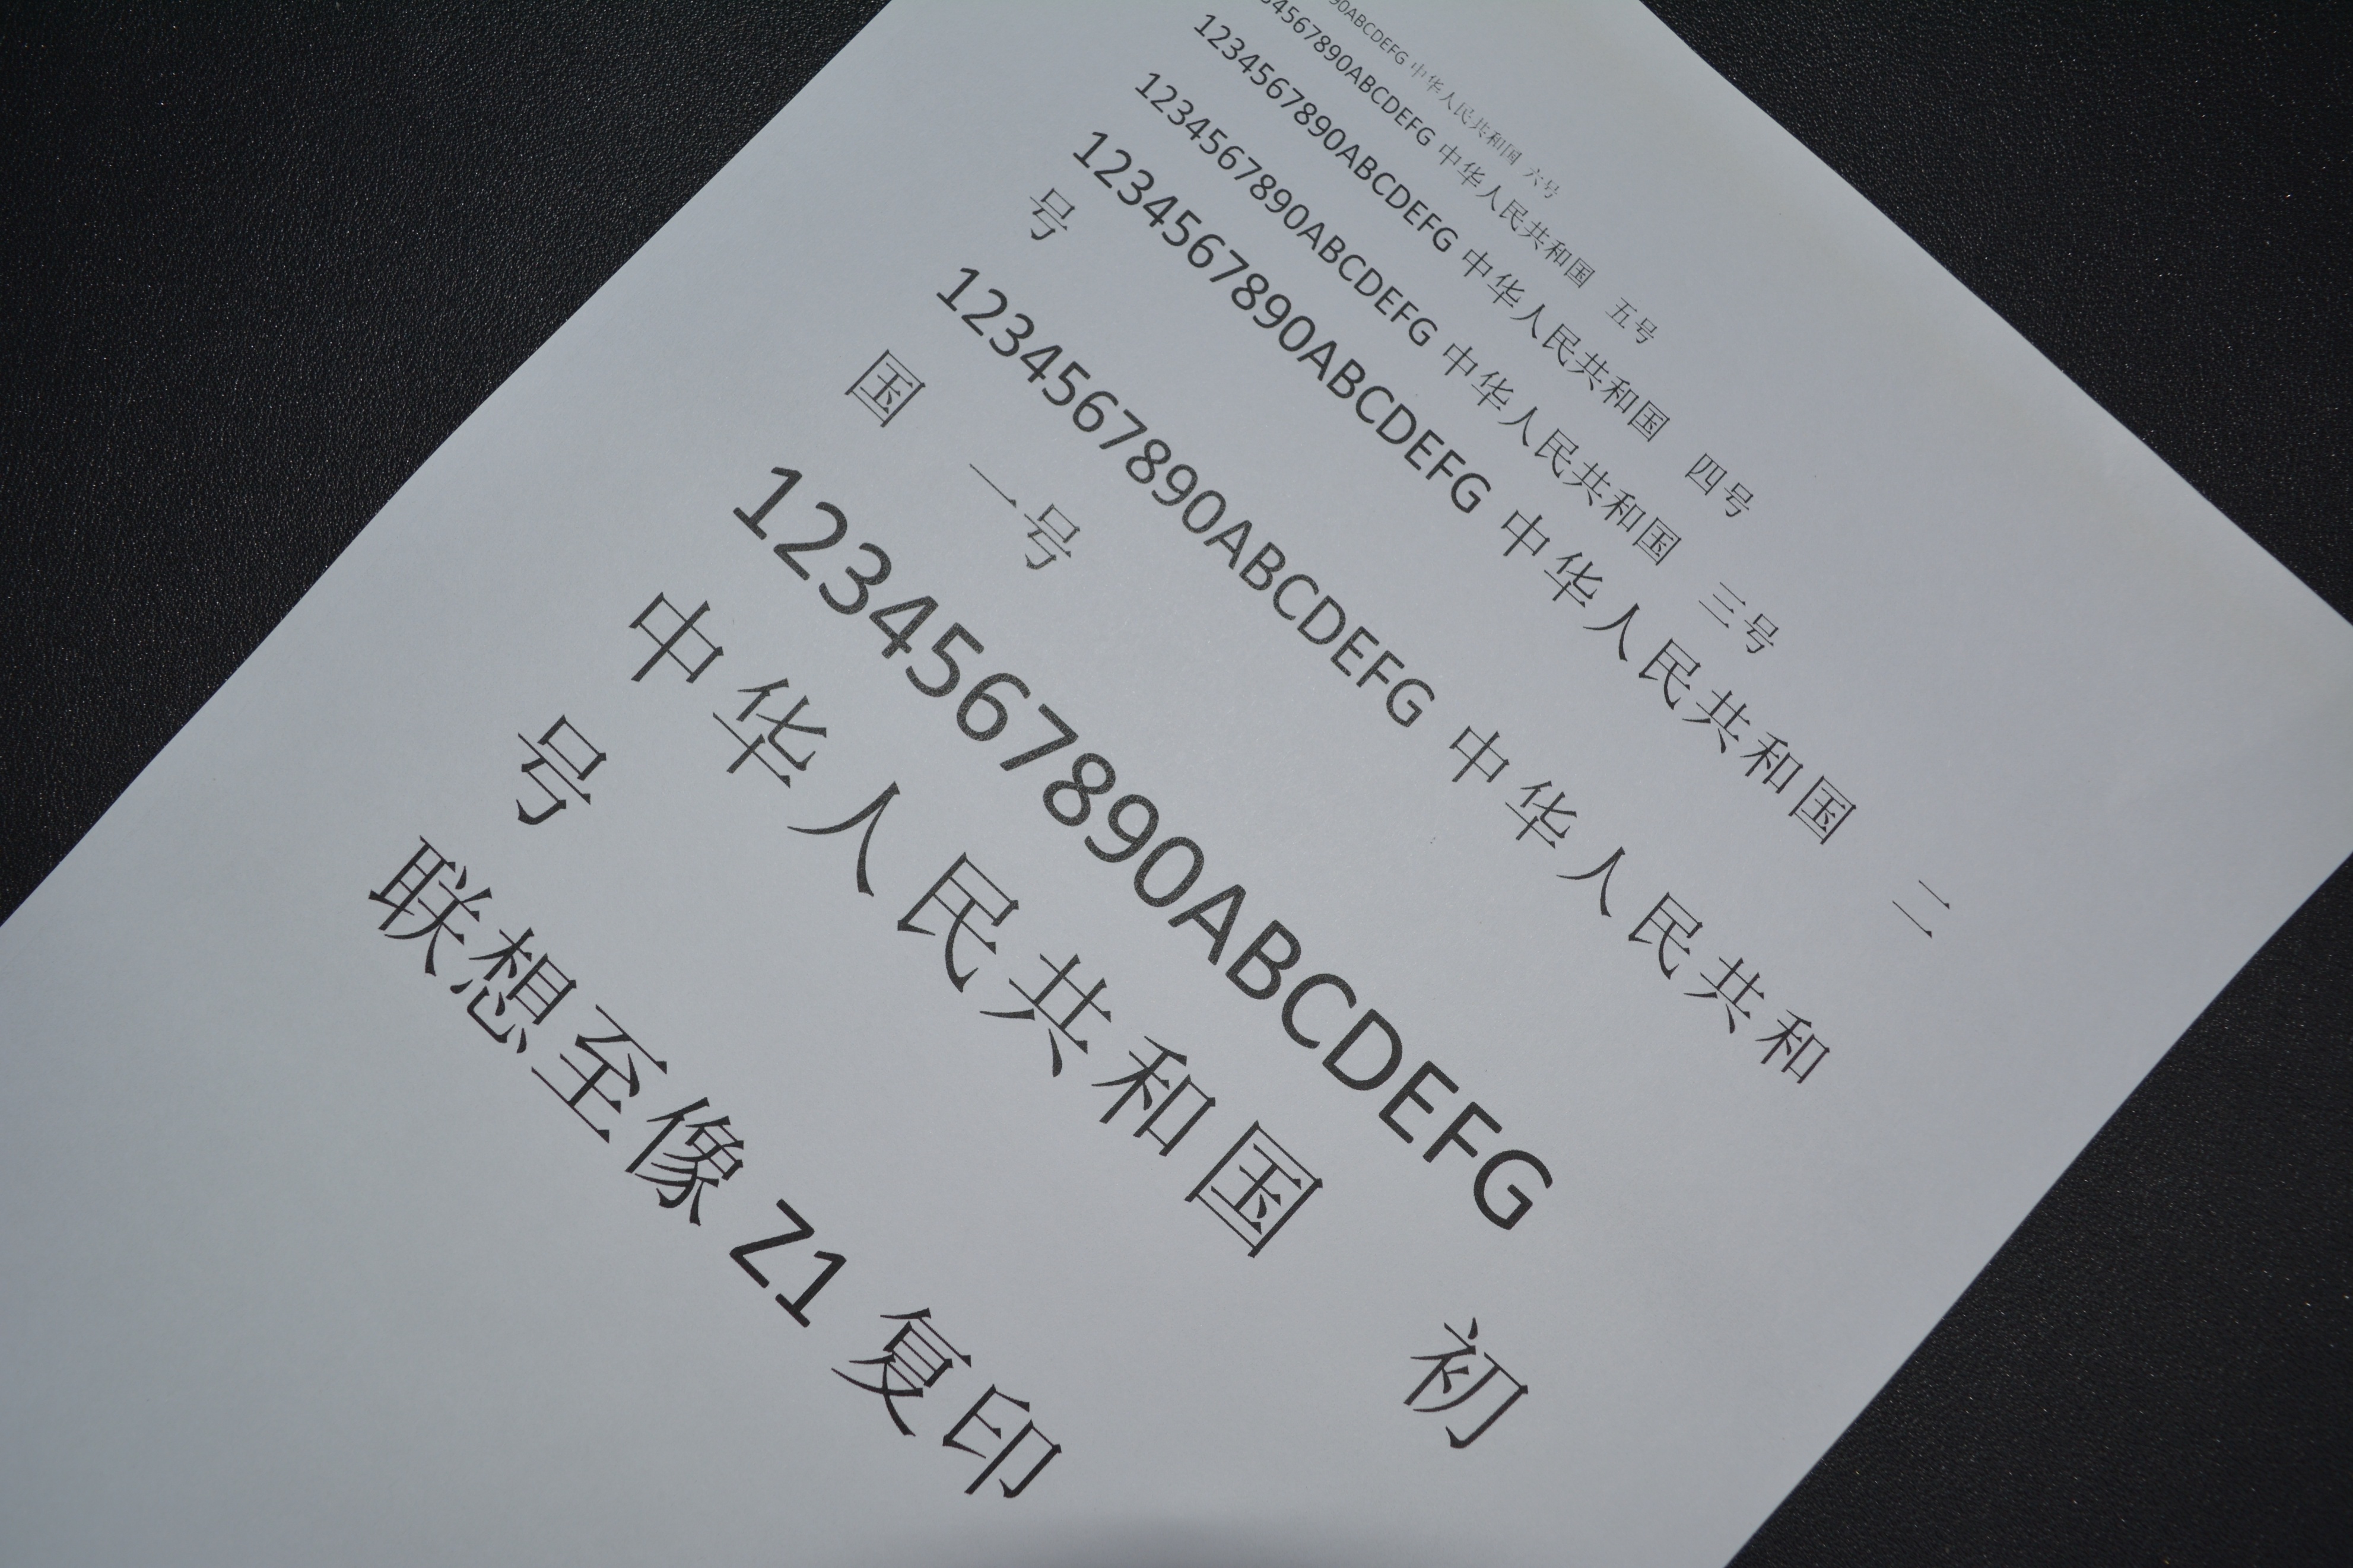 90ABCDEFG 中华人民共和国 六号
34567890ABCDEFG 中华人民共和国 五号
1234567890ABCDEFG 中华人民共和国 四号
1234567890ABCDEFG 中华人民共和国 三号
1234567890ABCDEFG 中华人民共和国 二
号
1234567890ABCDEFG 中华人民共和
国 一号
1234567890ABCDEFG
中华人民共和国 初
号
联想至像 Z1 复印